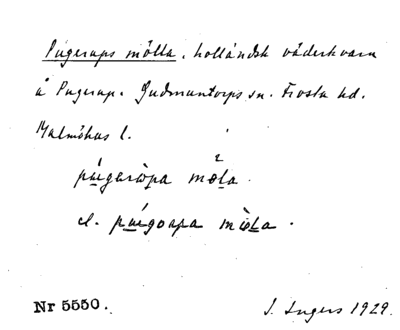 Pugerups mölla, holländsk väderkvarn
å Pugerup. Gudmuntorps sn. Frosta hd.
Malmöhus l.
mö̀la
el.
Nr 5550.
I. Ingers 1929.